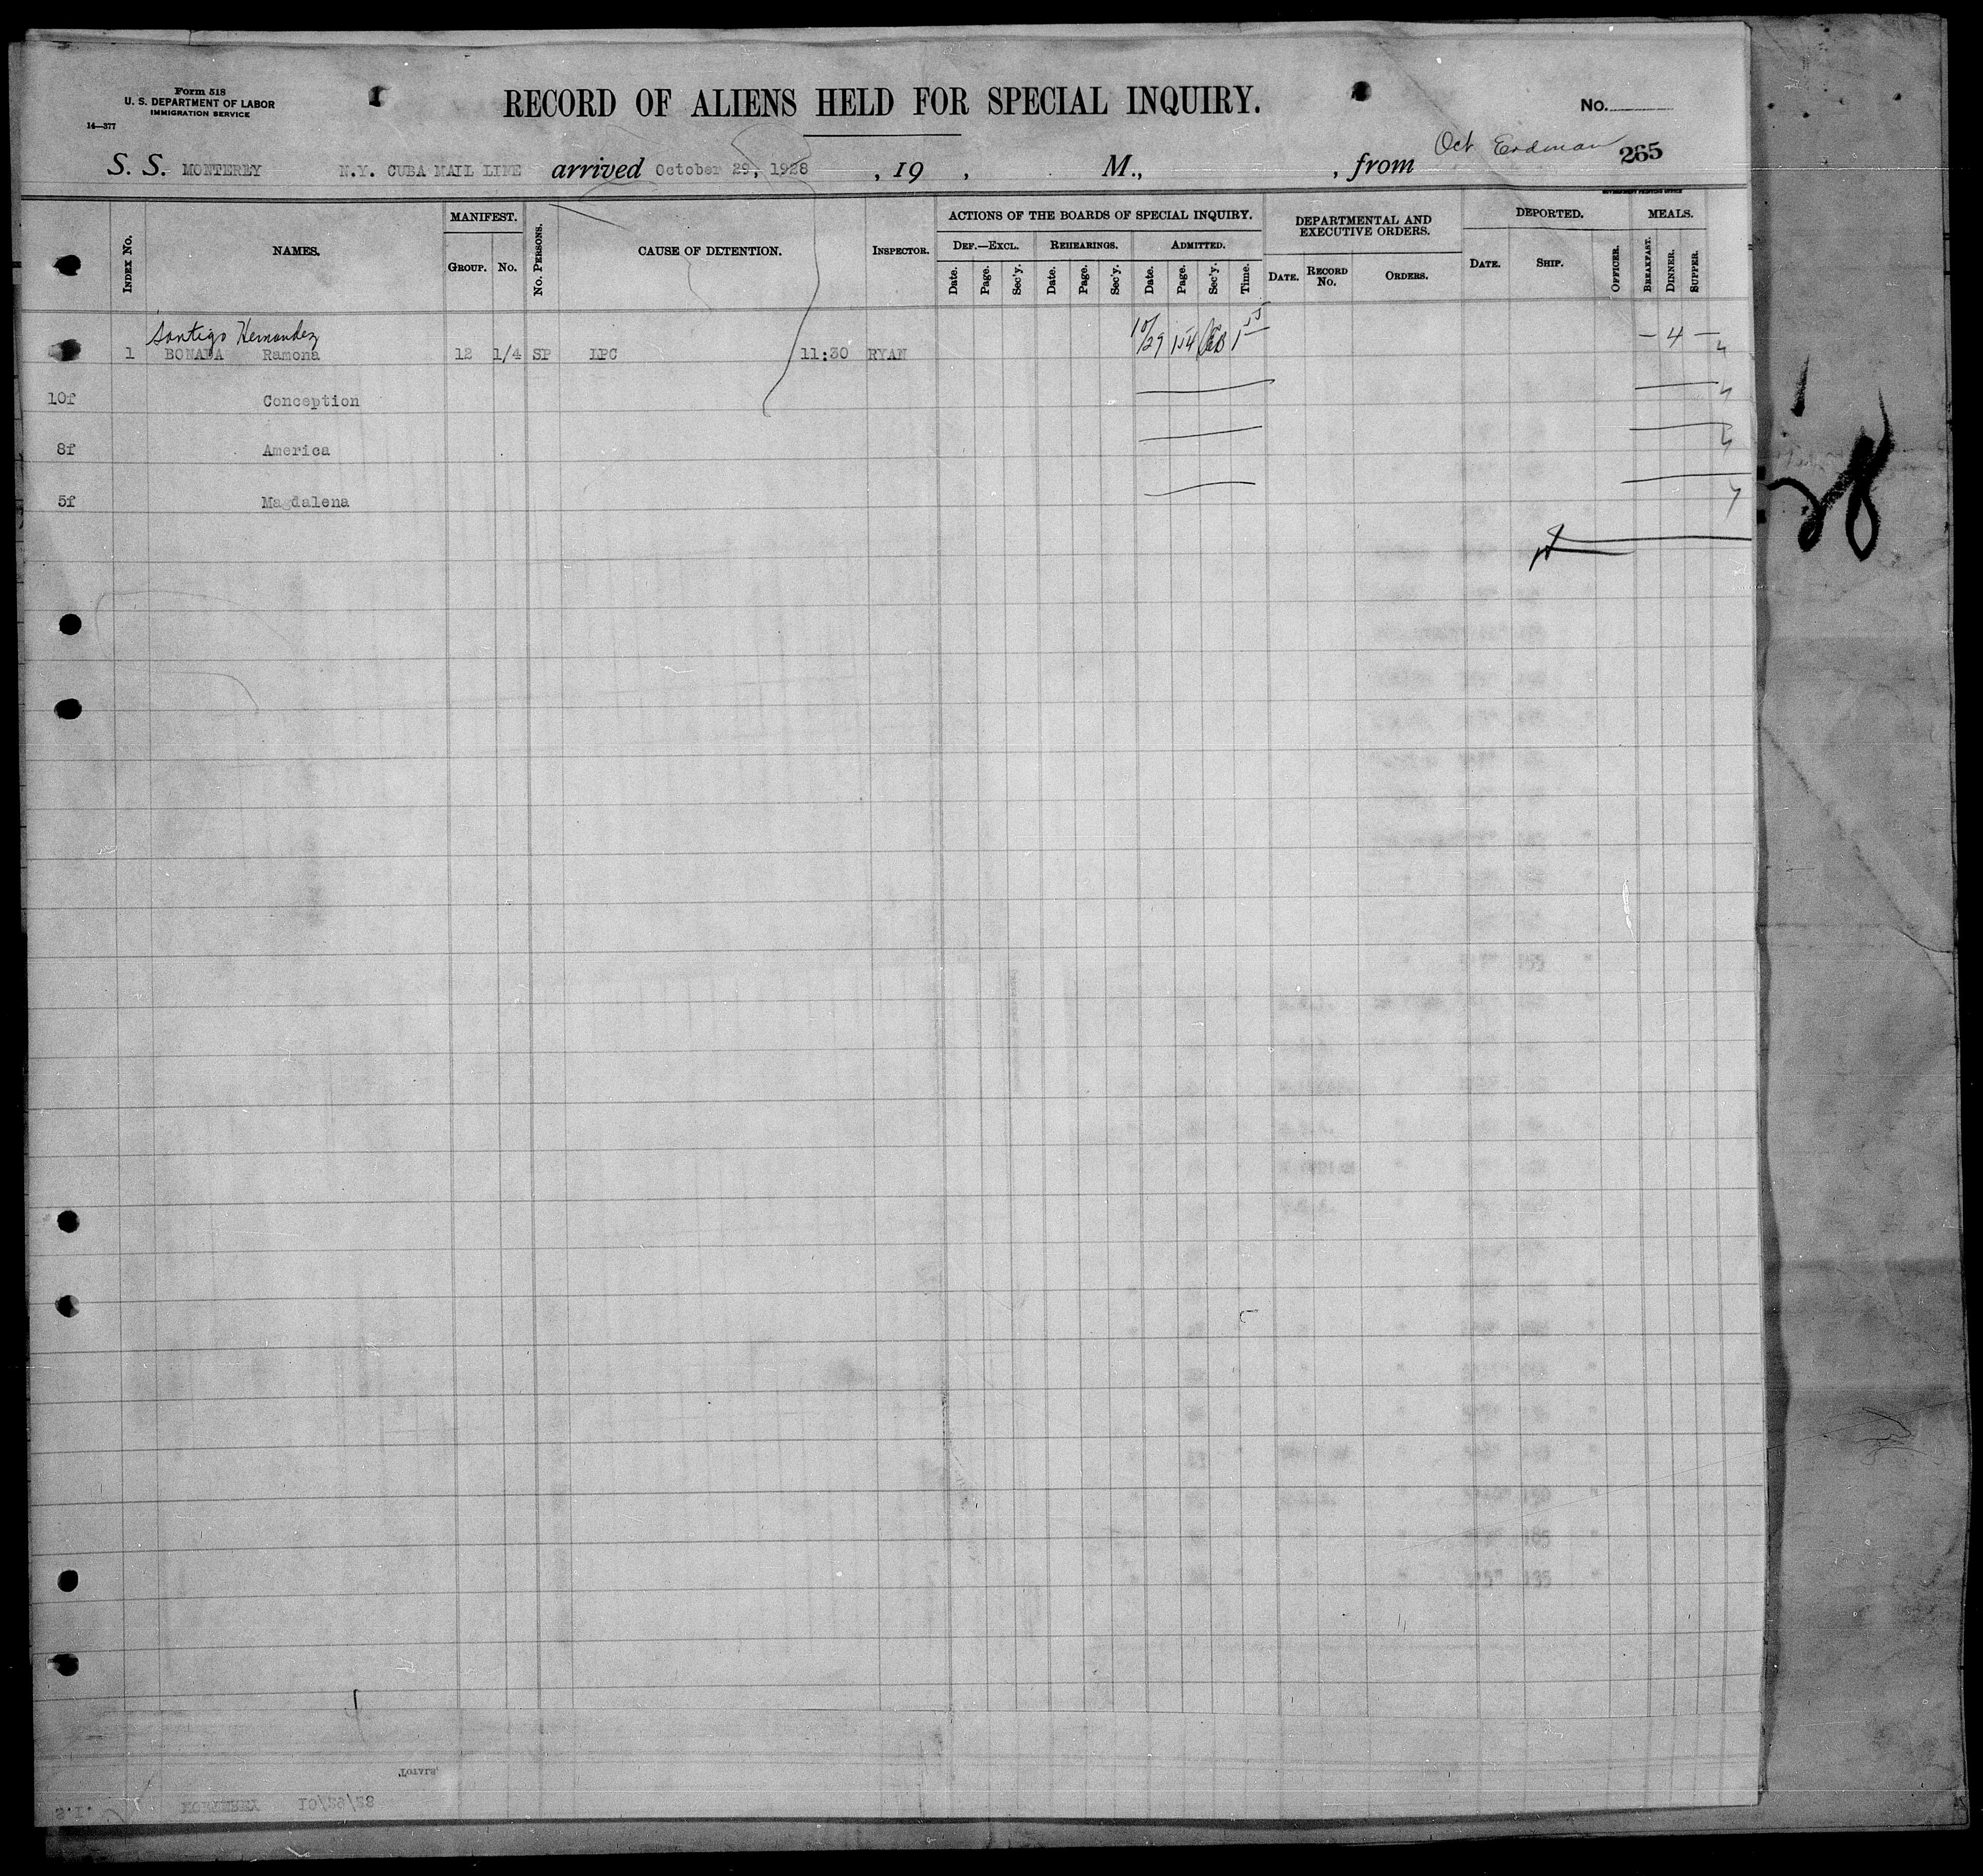 Form 518
U. S. DEPARTMENT OF LABOR
IMMIGRATION SERVICE
14—377
RECORD OF ALIENS HELD FOR SPECIAL INQUIRY.
No.
Oct Erdman 265
S. S. MONTEREY N.Y. CUBA MAIL LINE arrived October 29, 1928 , 19 , M., , from
GOVERNMENT PRINTING OFFICE
Index No. NAMES. MANIFEST. Group. No. No. Persons. CAUSE OF DETENTION. Inspector. ACTIONS OF THE BOARDS OF SPECIAL INQUIRY. Def.—Excl. Date. Page. Sec'y. Rehearings. Date. Page. Sec'y. Admitted. Date. Page. Sec'y. Time. DEPARTMENTAL AND EXECUTIVE ORDERS. Date. Record No. Orders. DEPORTED. Date. Ship. Officer. MEALS. Breakfast. Dinner. Supper.
Santigo Hernandez
1 BONADA Ramona 12 1/4 SP LPC 11:30 RYAN 10/29 154 1 55 — 4 — 4
10f Conception 4
8f America 4
5f Magdalena 4
28
155
185
135
Totals.
S.I. MONTEREY 10/29/28